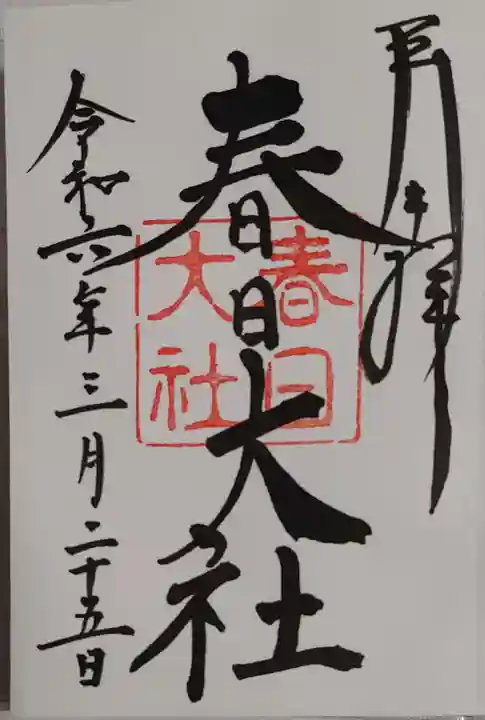 春日大社
春日
大社
令和六年三月二十五日